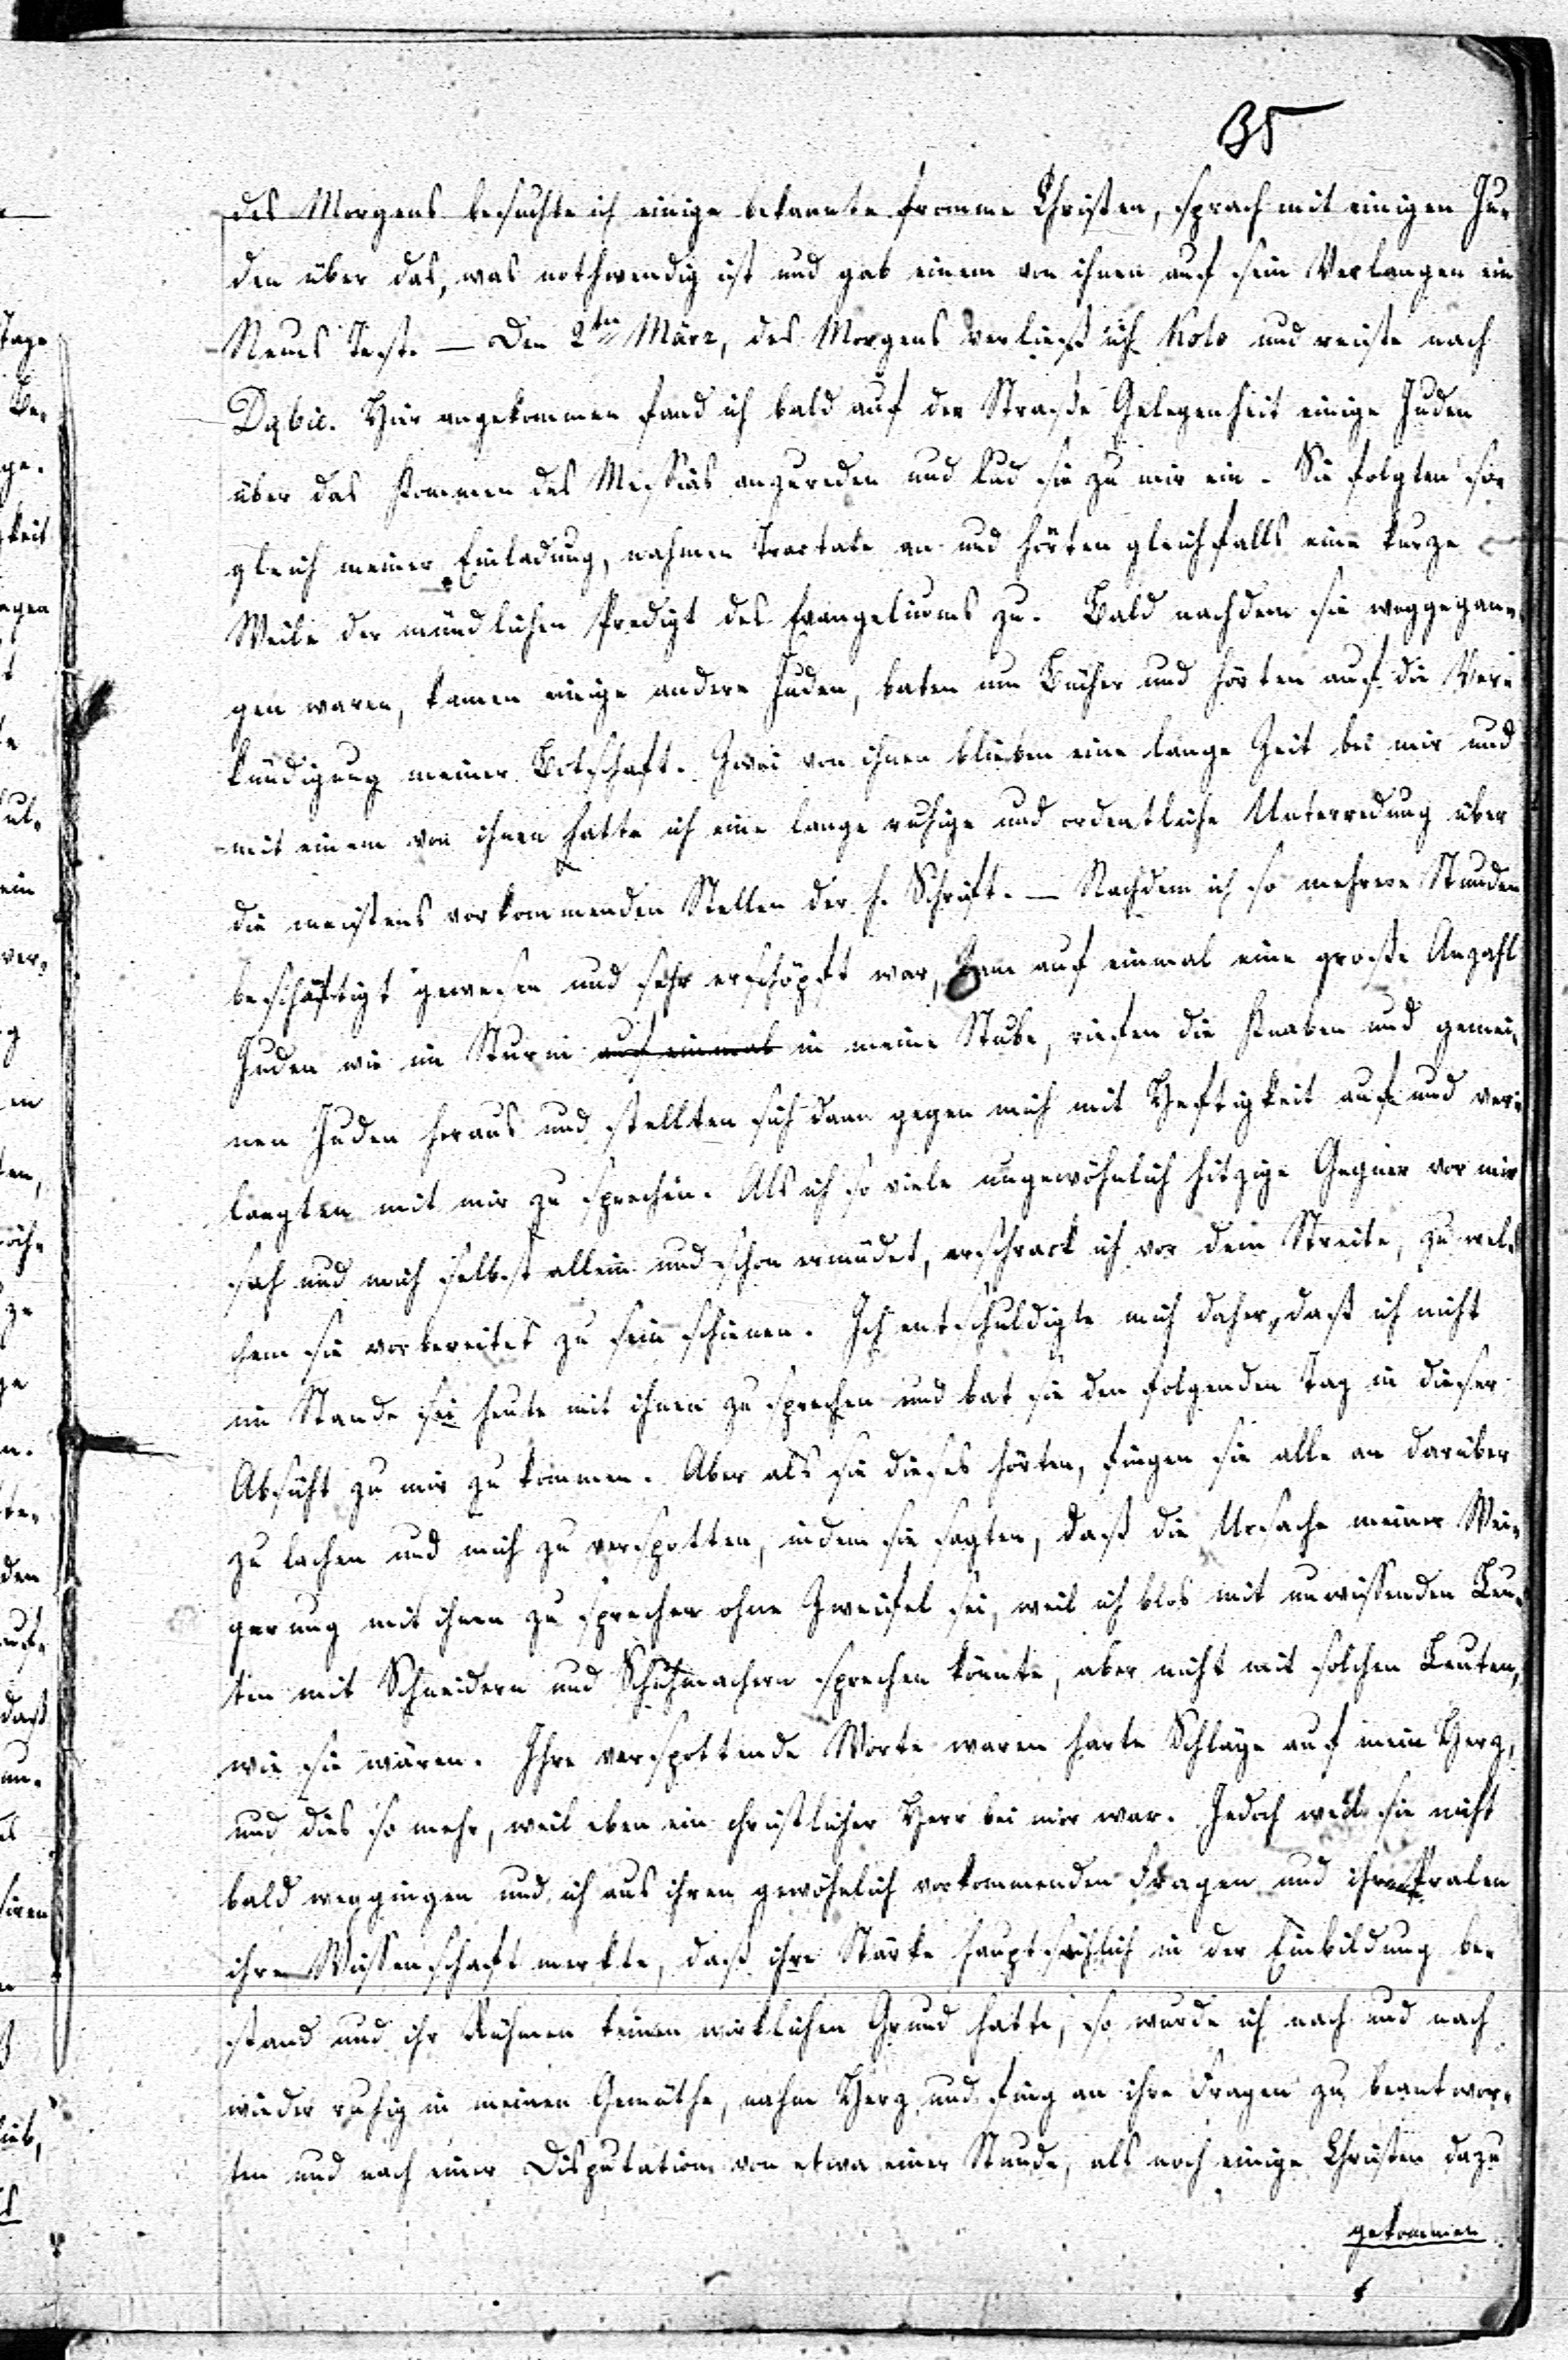 35
des Morgens besuchte ich einige bekannte fromme Christen, sprach mit einigen Ju-
den über das, was nothwendig ist und gab einem von ihnen auf sein Verlangen ein
Neues Test. — Den 2ten März, des Morgens verließ ich Koło und reiste nach
Dąbie. Hier angekommen fand ich bald auf der Straße Gelegenheit einige Juden
über das Kommen des Messias anzureden und lud sie zu mir ein. Sie folgten so-
gleich meiner Einladung, nahmen Tractate an und hörten gleichfalls eine kurze
Weile der mündlichen Predigt des Evangeliums zu. Bald nachdem sie weggegan-
gen waren, kamen einige andere Juden, baten um Bücher und hörten auf die Ver-
kündigung meiner Botschaft. Zwei von ihnen blieben eine lange Zeit bei mir und
mit einem von ihnen hatte ich eine lange ruhige und ordentliche Unterredung über
die meistens vorkommenden Stellen der h. Schrift. — Nachdem ich so mehrere Stunden
beschäftigt gewesen und sehr erschöpft war, kam auf einmal eine große Anzahl
Juden wie im Sturm auf einmal in meine Stube, riefen die Knaben und gemei-
nen Juden heraus und stellten sich dann gegen mich mit Heftigkeit auf und ver-
langten mit mir zu sprechen. Als ich so viele ungewöhnlich hitzige Gegner vor mir
sah und mich selbst allein und schon ermüdet, erschrack ich vor dem Streite, zu wel-
chem sie vorbereitet zu sein schienen. Ich entschuldigte mich daher, daß ich nicht
im Stande sei heute mit ihnen zu sprechen und bat sie den folgenden Tag in dieser
Absicht zu mir zu kommen. Aber als sie dieses hörten, fingen sie alle an darüber
zu lachen und mich zu verspotten, indem sie sagten, daß die Ursache meiner Wei-
gerung mit ihnen zu sprechen ohne Zweifel sei, weil ich blos mit unwissenden Leu-
ten mit Schneidern und Schuhmachern sprechen könnte, aber nicht mit solchen Leuten,
wie sie wären. Ihre verspottende Worte waren harte Schläge auf mein Herz,
und dies so mehr, weil eben ein christlicher Herr bei mir war. Jedoch weil sie nicht
bald weggingen und ich aus ihren gewöhnlich vorkommenden Fragen und ihrem Pralen
ihre Wissenschaft merkte, daß ihre Stärke hauptsächlich in der Einbildung be-
stand und ihr Rühmen keinen wirklichen Grund hatte, so wurde ich nach und nach
wieder ruhig in meinem Gemüthe, nahm Herz und fing an ihre Fragen zu beantwor-
ten und nach einer Disputation von etwa einer Stunde, als noch einige Christen dazu
gekommen